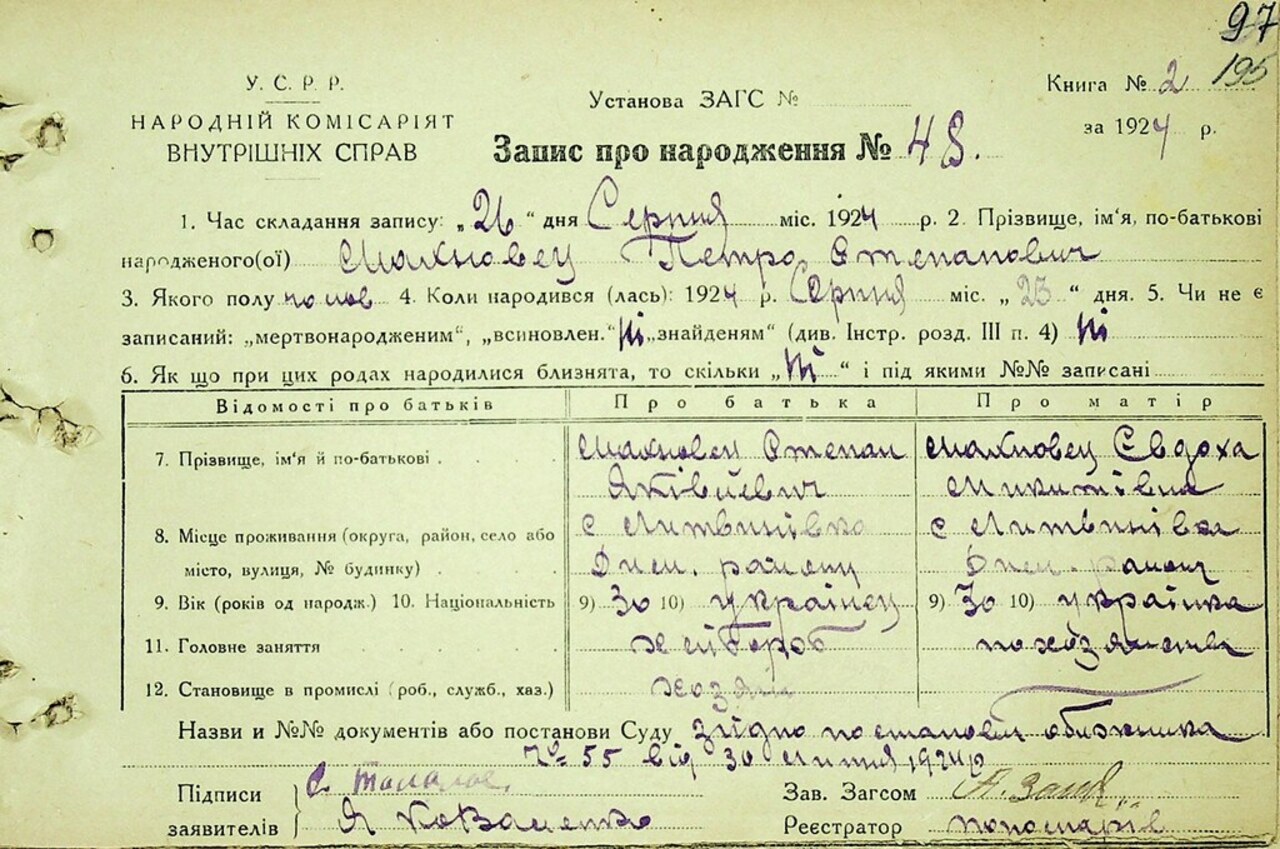 97
195
У. С. Р. Р.
НАРОДНІЙ КОМІСАРІЯТ
ВНУТРІШНІХ СПРАВ
Установа ЗАГС №
Книга № 2
за 1924 р.
Запис про народження № 48.
1. Час складання запису: „26“ дня Серпня міс. 1924 р. 2. Прізвище, ім'я, по-батькові
народженого(ої) Махновец Петро Степанович
3. Якого полу чолов 4. Коли народився (лась): 1924 р. Серпня міс. „23“ дня. 5. Чи не є
записаний: „мертвонародженим“, „всиновлен.“ Ні „знайденям“ (див. Інстр. розд. III п. 4) Ні
6. Як що при цих родах народилися близнята, то скільки „Ні“ і під якими №№ записані
Відомості про батьків Про батька Про матір
7. Прізвище, ім'я й по-батькові . . . Махновец Степан Махновец Євдоха
Яківцевич Микитівна
8. Місце проживання (округа, район, село або с Литвинівка с Литвинівка
місто, вулиця, № будинку) . . . Дим. району Дим. району
9. Вік (років од народж.) 10. Національність 9) 30 10) українец 9) 30 10) українка
11. Головне заняття . . . . хлібороб по хозяйству
12. Становище в промислі (роб., служб., хаз.) хозяин
Назви и №№ документів або постанови Суду згідно постанови обіжника
№ 55 від 30 липня 1924 р
Підписи
заявителів
Я Коваленко
Зав. Загсом
Реєстратор